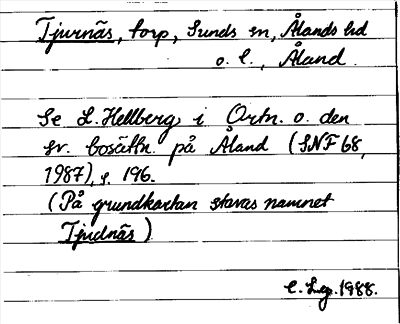 Tjurnäs, torp, Sunds sn, Ålands hd
o. l., Åland.
Se L. Hellberg, i Ortn. o. den
sv. bosättn. på Åland (SNF 68,
1987), s. 196.
(På grundkartan stavas namnet
Tjudnäs)
C. Lg. 1988.